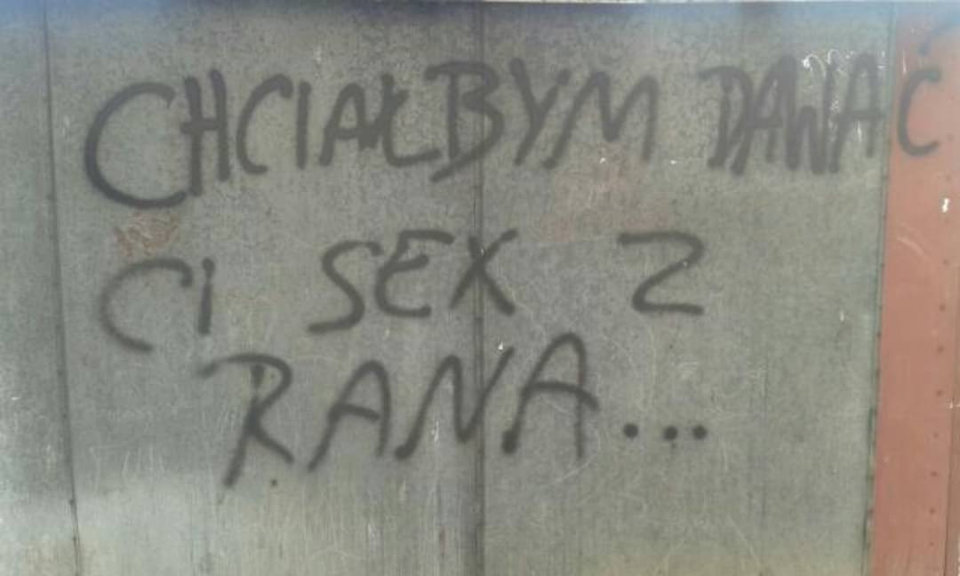 CHCIAŁBYM DAWAĆ
CI SEX Z
RANA...